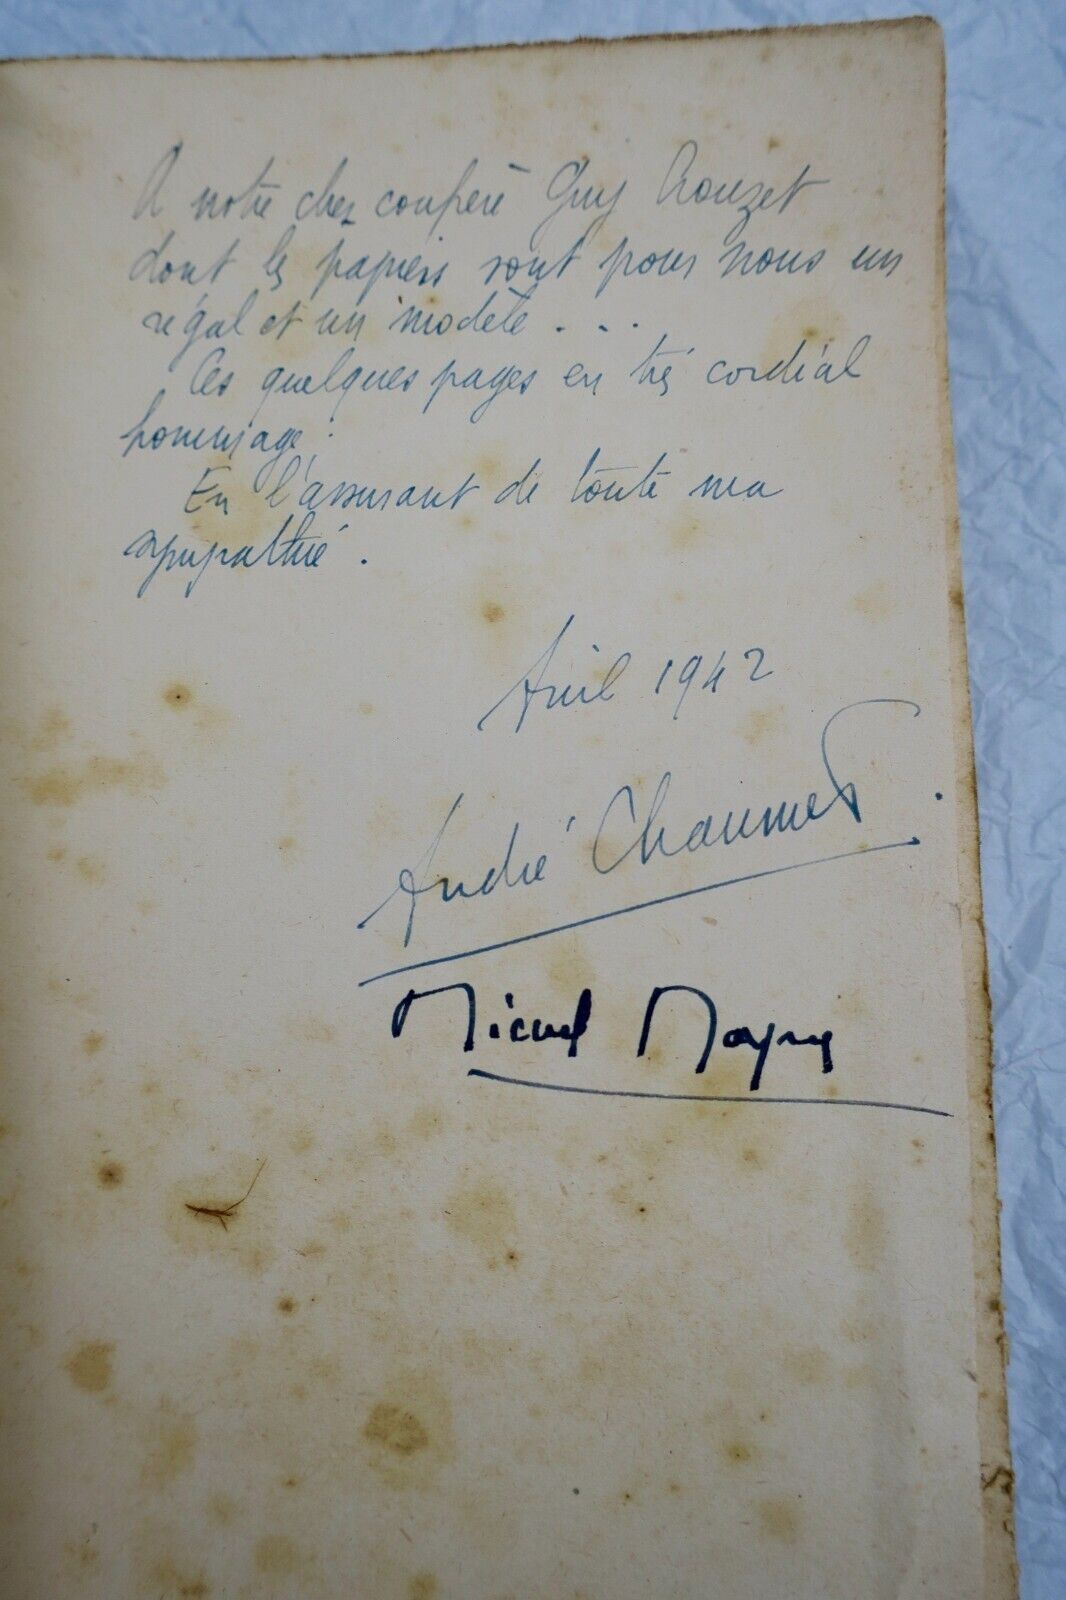 A notre cher confrère Guy Crouzet
dont les papiers sont pour nous un
régal et un modèle . . .
Ces quelques pages en très cordial
hommage.
En l'assurant de toute ma
sympathie.
Avril 1942
André Chaumet.